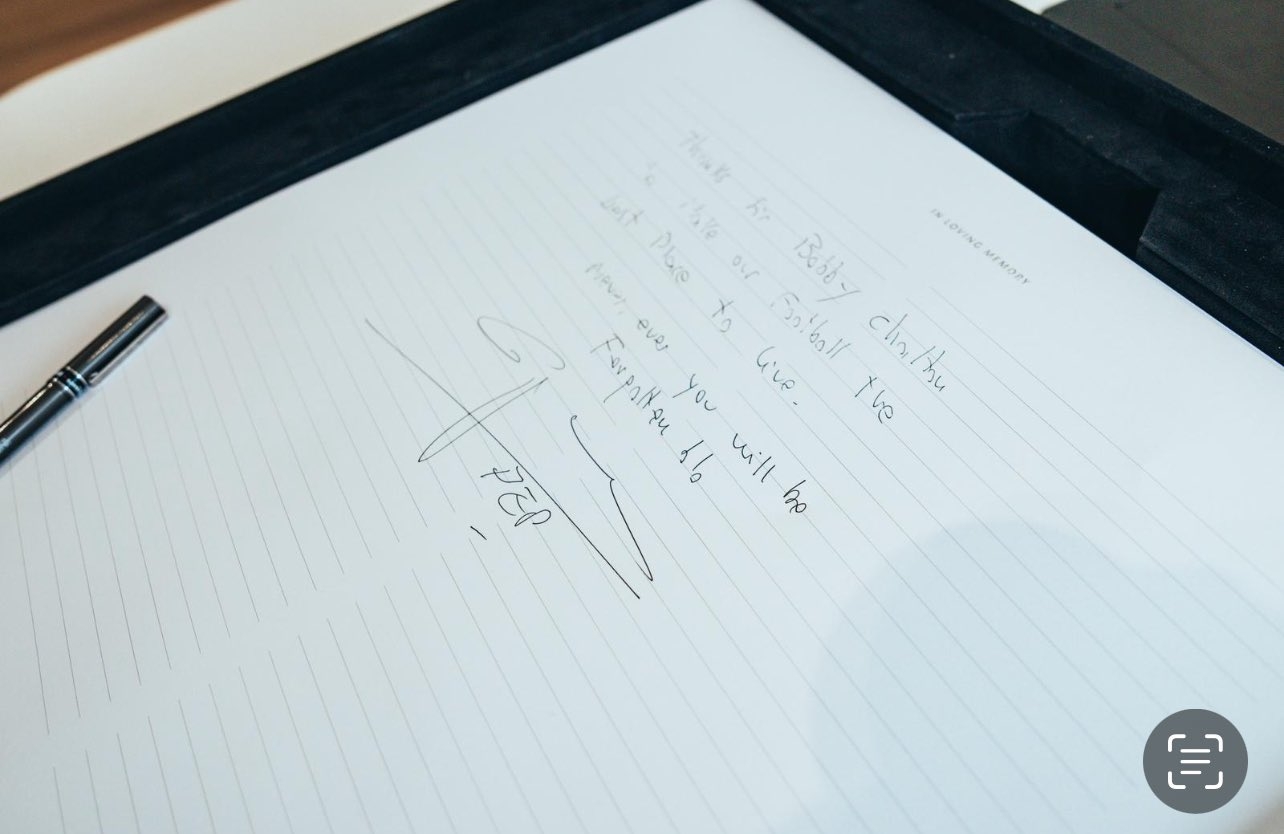 IN LOVING MEMORY
Thanks for Bobby Charlton
to make our Football the
best place to live.
Never, ever you will be
Forgotten
PEP